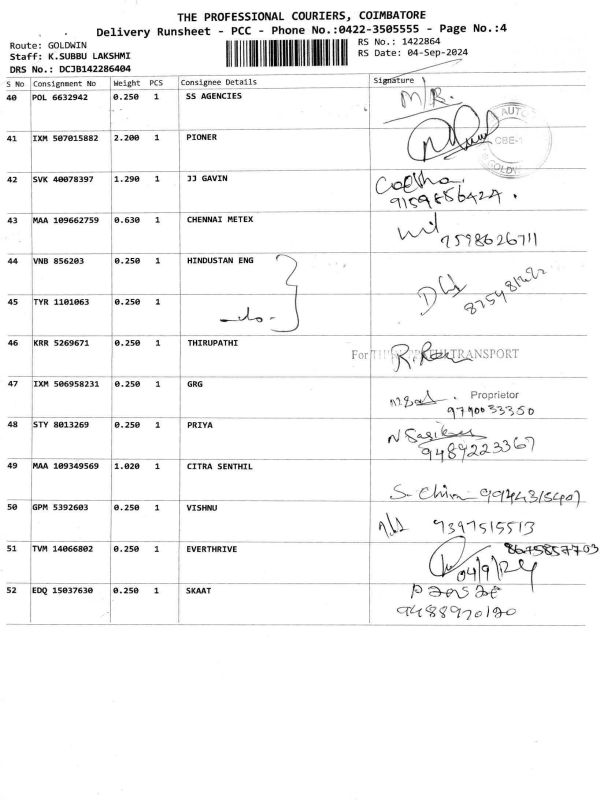 THE PROFESSIONAL COURIERS, COIMBATORE
Delivery Runsheet - PCC - Phone No.:0422-3505555 - Page No.:4
Route: GOLDWIN
RS No.: 1422864
Staff: K.SUBBU LAKSHMI
RS Date: 04-Sep-2024
DRS No.: DCJB142286404
S No Consignment No Weight PCS Consignee Details Signature
40 POL 6632942 0.250 1 SS AGENCIES M/R.
41 IXM 507015882 2.200 1 PIONER
AUTO
CBE-1
GOLDWI
42 SVK 40078397 1.290 1 JJ GAVIN
9159856424.
43 MAA 109662759 0.630 1 CHENNAI METEX
7598626711
44 VNB 856203 0.250 1 HINDUSTAN ENG
45 TYR 1101063 0.250 1 -do-
46 KRR 5269671 0.250 1 THIRUPATHI
For TRANSPORT
47 IXM 506958231 0.250 1 GRG
Proprietor
9790033350
48 STY 8013269 0.250 1 PRIYA
N Sasiku
9489223367
49 MAA 109349569 1.020 1 CITRA SENTHIL
50 GPM 5392603 0.250 1 VISHNU
9397515513
51 TVM 14066802 0.250 1 EVERTHRIVE
04/9/24
52 EDQ 15037630 0.250 1 SKAAT
9488970120